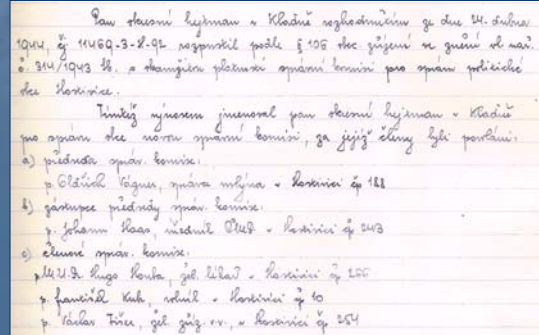 Pan okresní hejtman v Kladně rozhodnutím ze dne 24. dubna
1944, čj 11469-3-8-92 rozpustil podle § 106 obc. zřízení ve znění vl. nař.
č. 314/1943 Sb. s okamžitou platností správní komisi pro správu politické
obce Hostivice.
Tímtéž výnosem jmenoval pan okresní hejtman v Kladně
pro správu obce novou správní komisi, za jejíž členy byli povoláni:
a) předseda správ. komise:
p. Oldřich Vágner, správce mlýna v Hostivici čp 188
b) zástupce předsedy správ. komise:
p. Johann Haas, úředník v Hostivici čp 243
c) členové správ. komise:
p. MUDr Hugo Houba, žel. lékař v Hostivici čp 266
p. František Kuh, rolník v Hostivici čp 10
p. Václav Fišer, žel. zříz. v.v., v Hostivici čp 254